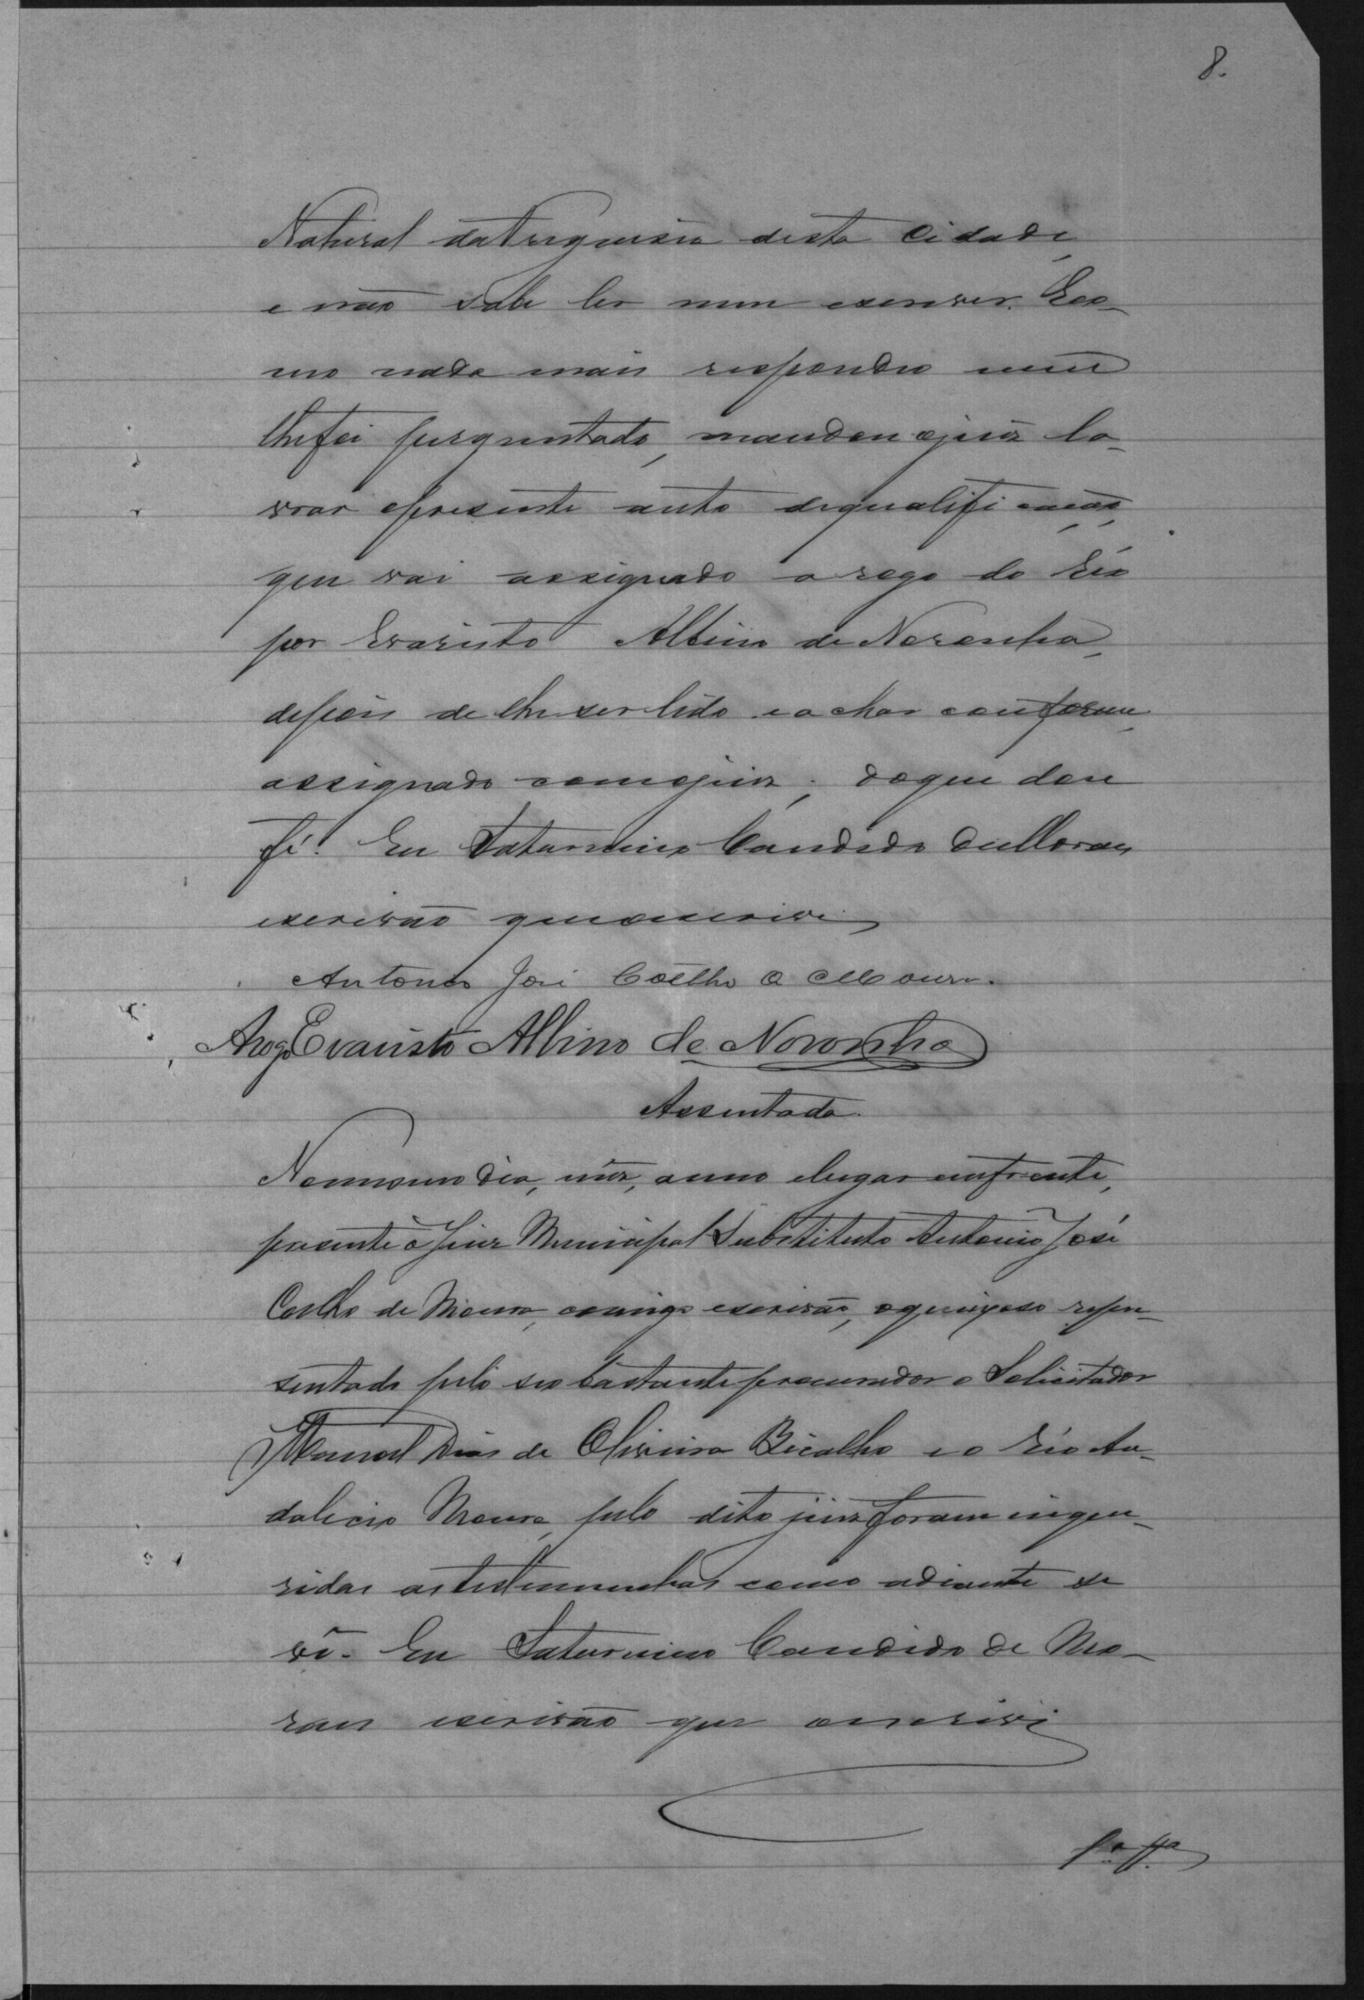 8.
Natural da Freguesia desta Cidade,
e não sabe ler nem escrever. E co-
mo nada mais respondeo nem
lhe foi perguntado, mandou o juiz la-
vrar o presente auto de qualificação,
que vai assignado a rogo do Réo
por Evaristo Albino de Noronha,
depois de lhe ser lido e achar conforme,
assignado com o juiz; do que dou
fé. Eu Saturnino Candido de Moraes
escrivão que o escrivi
Antonio José Coêlho de Moura.
Arogo Evaristo Albino de Noronha
Assentada.
No mesmo dia, mez, anno e lugar em frente,
presente o Juiz Municipal Substituto Antonio José
Coelho de Moura, comigo escrivão, o queixoso repre-
sentado pelo seo bastante procurador o Solicitador
Manoel Dias de Oliveira Bicalho e o Réo An-
dalecio Moura, pelo dito juiz foram inque-
ridas as testemunhas como adiante se
vê. Eu Saturnino Candido de Mo-
raes escrivão que o escrivi
1.a t.a